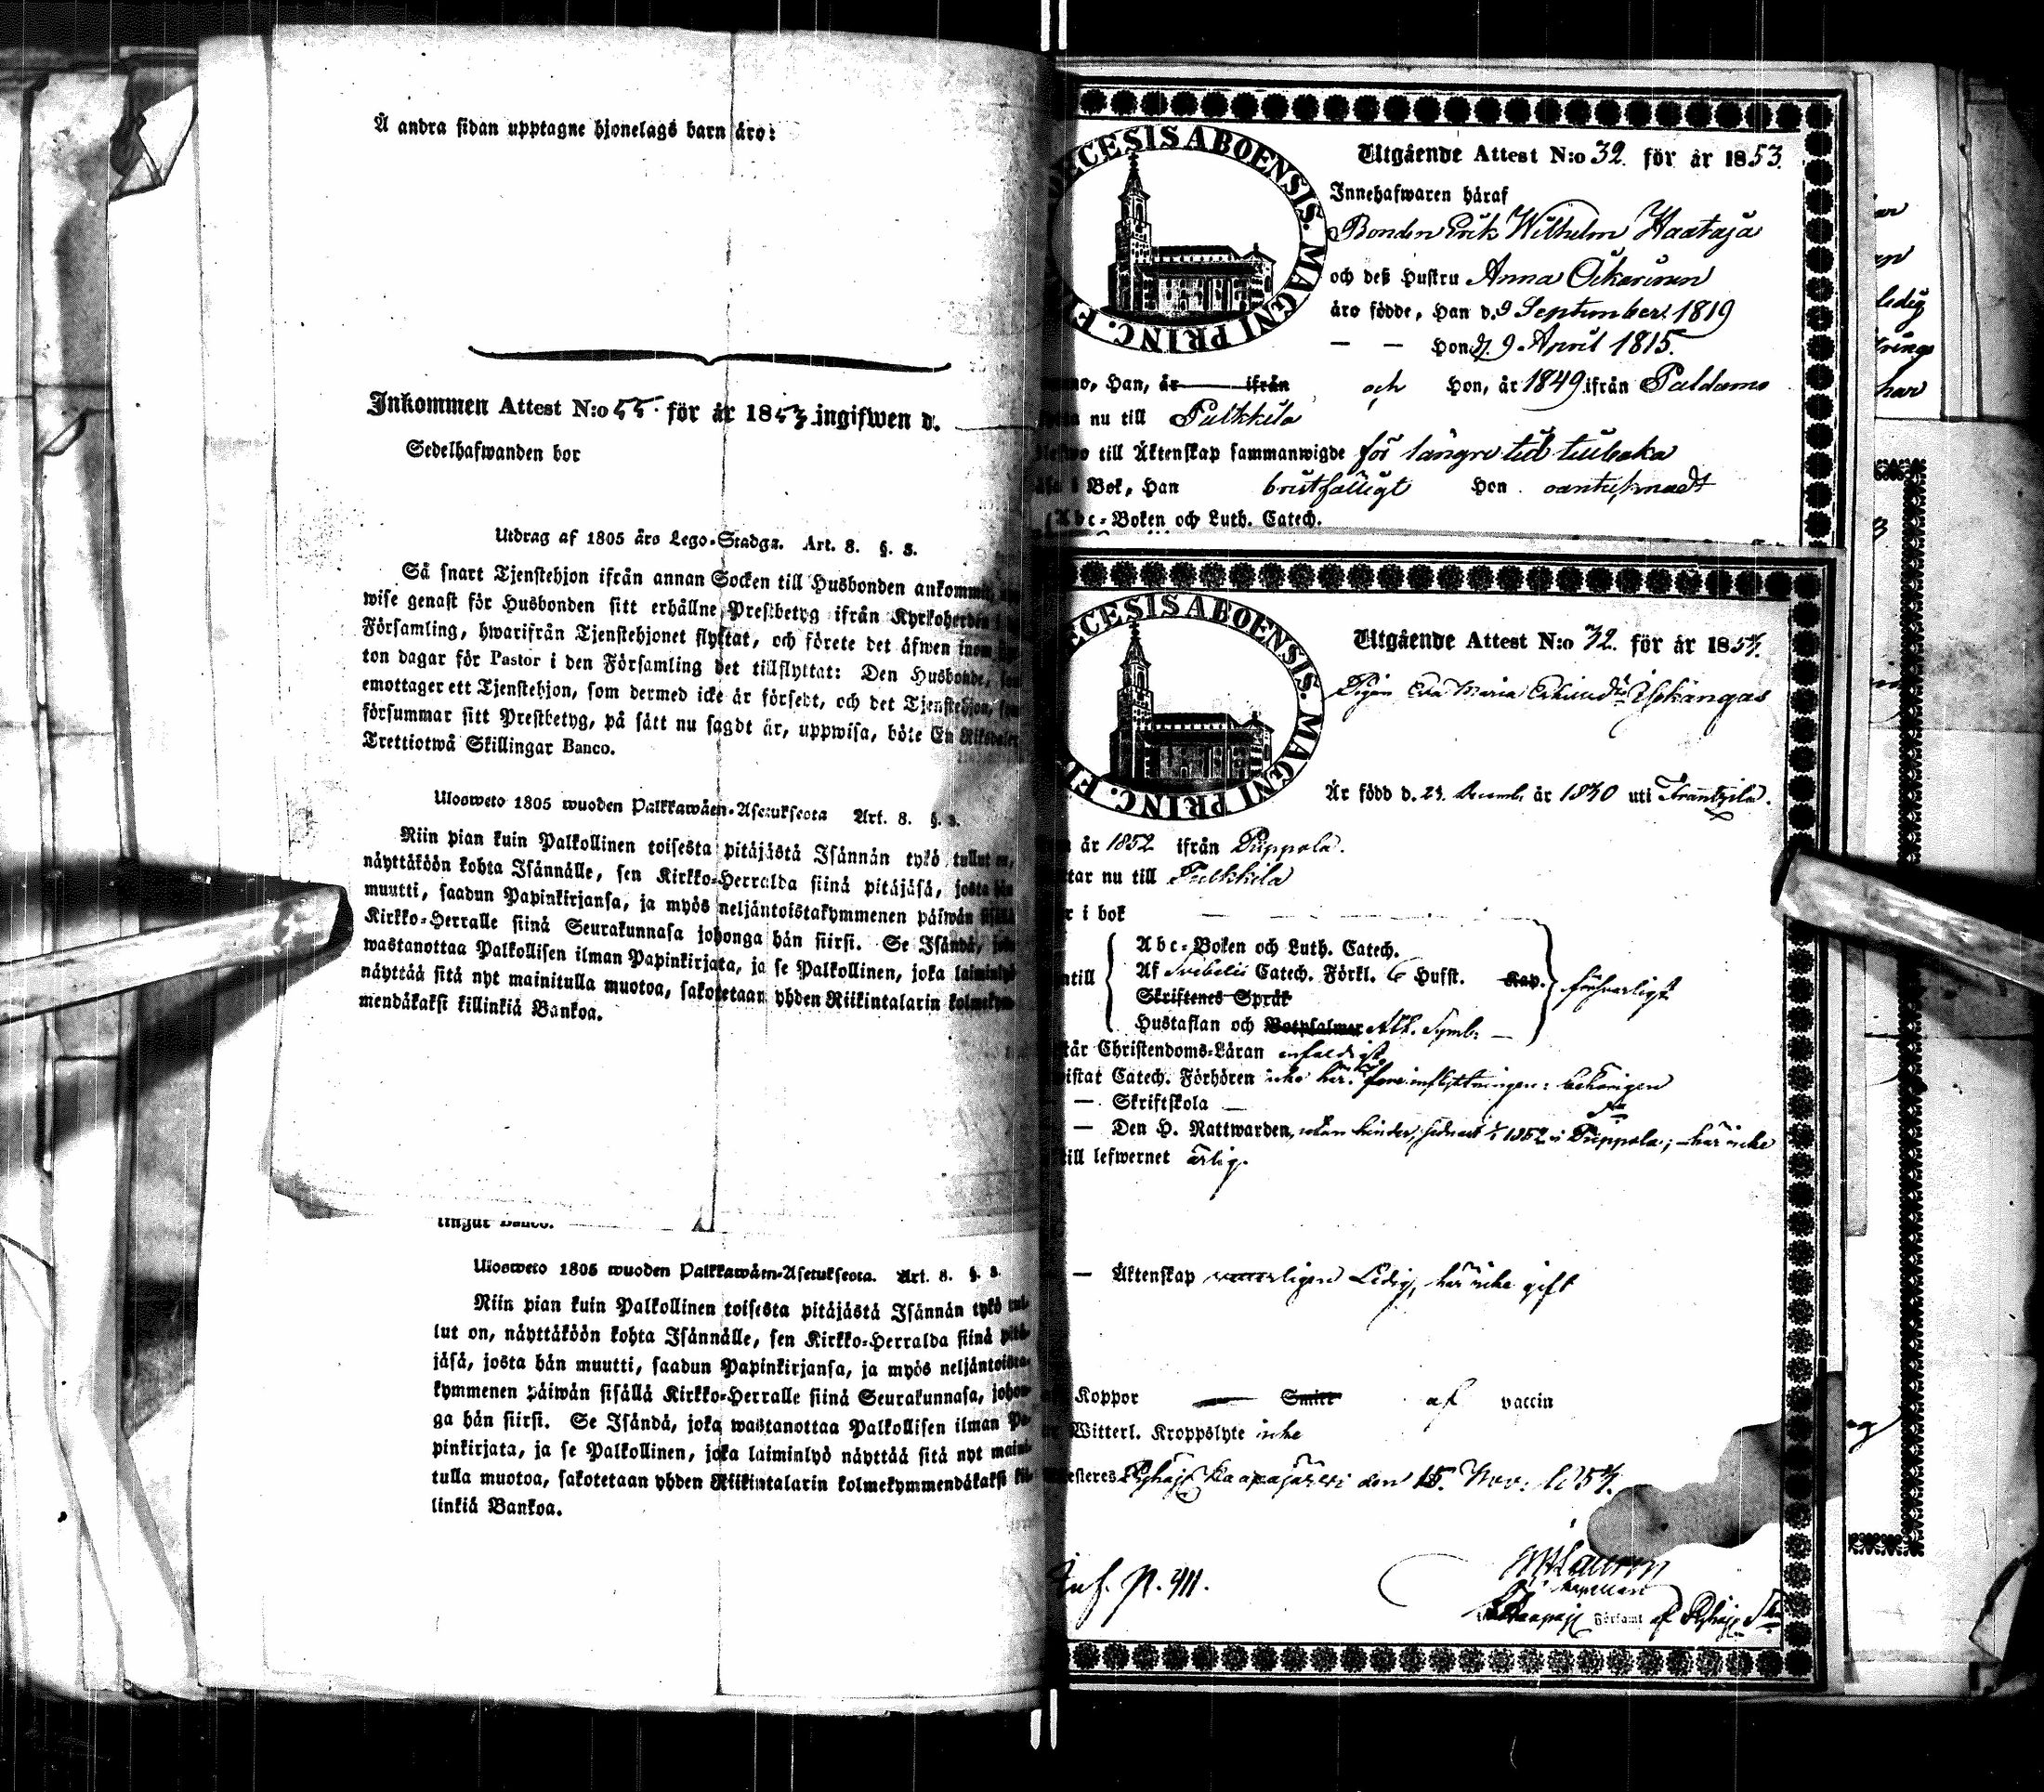 Å andra sidan upptagne hjonelags barn äro:
Inkommen Attest N:o 55. för år 1853 ingifwen d.
Sedelhafwanden bor
Utdrag af 1805 års Lego-Stadga. Art. 8. §. 3.
Så snart Tjenstehjon ifrån annan Socken till Husbonden ankommit,
wise genast för Husbonden sitt erhållne Prestbetyg ifrån Kyrkoherden i
Församling, hwarifrån Tjenstehjonet flyttat, och förete det äfwen inom
ton dagar för Pastor i den Församling det tillflyttat: Den Husbonde,
emottager ett Tjenstehjon, som dermed icke är försedt, och det Tjenstehjon,
försummar sitt Prestbetyg, på sätt nu sagdt är, uppwisa, böte En Riksdaler
Trettiotwå Skillingar Banco.
Ulosweto 1805 wuoden Palkkawäen-Asetuksesta Art. 8. §. 3.
Niin pian kuin Palkollinen toisesta pitäjästä Isännän tykö tullut on,
näyttäköön kohta Isännälle, sen Kirkko-Herralda siinä pitäjäsä, josta hän
muutti, saadun Papinkirjansa, ja myös neljäntoistakymmenen päiwän sisällä
Kirkko-Herralle siinä Seurakunnasa johonga hän siirsi. Se Isändä, joka
wastanottaa Palkollisen ilman Papinkirjata, ja se Palkollinen, joka laiminlyö
näyttää sitä nyt mainitulla muotoa, sakotetaan yhden Riikintalarin kolmekym-
mendäkaksi killinkiä Bankoa.
lingar Banco.
Ulosweto 1805 wuoden Palkkawäen-Asetuksesta. Art. 8. §. 3.
Niin pian kuin Palkollinen toisesta pitäjästä Isännän tykö tul-
lut on, näyttäköön kohta Isännälle, sen Kirkko-Herralda siinä pitä-
jäsä, josta hän muutti, saadun Papinkirjansa, ja myös neljäntoista-
kymmenen päiwän sisällä Kirkko-Herralle siinä Seurakunnasa, johon-
ga hän siirsi. Se Isändä, joka wastanottaa Palkollisen ilman Pa-
pinkirjata, ja se Palkollinen, joka laiminlyö näyttää sitä nyt maini-
tulla muotoa, sakotetaan yhden Riikintalarin kolmekymmendäkaksi kil-
linkiä Bankoa.
ECESIS ABOENSIS. MAGNI PRINC. F
Utgående Attest N:o 32. för år 1853.
Innehafwaren häraf
Bonden Erik Wilhelm Haataja
och deß Hustru Anna Ockarinen
äro födde, Han d. 9 September 1819
— — Hon d. 9 April 1815.
Han, är ifrån och Hon, år 1849 ifrån Paldamo
nu till Pulkkila
till Äktenskap sammanwigde för längre tid tillbaka
i Bok, Han bristfälligt Hon oantecknadt
Abc-Boken och Luth. Catech.
ECESIS ABOENSIS. MAGNI PRINC. F
Utgående Attest N:o 32. för år 1854.
Pigan Eva Maria Eriksdr Ypkangas
Är född d. 23 Decemb. år 1830 uti Frantzila.
år 1852 ifrån Pippola.
tar nu till Pulkkila
r i bok
Abc-Boken och Luth. Catech.
Af Svebelii Catech. Förkl. 6 Hufst. Kap.
Skriftenes Språk
Hustaflan och Botpsalmer Ath. Symb. —
ntill
försvarligt
Christendoms-Läran enfaldigt
wistat Catech. Förhören icke här. före inflyttningen: behörigen
— Skriftskola —
— Den H. Nattwarden, utan hinder, sednast 1852 i Pippola; här icke
till lefwernet ärlig.
— Äktenskap Ledig, här icke gift
Koppor — Smitt af vaccin
Witterl. Kroppslyte icke
esteres Pyhäj. Kaapajärvi den 15. Nov. 1854.
Inf. p. 411.
Kapellan
Församl af Pyhäj. Sn